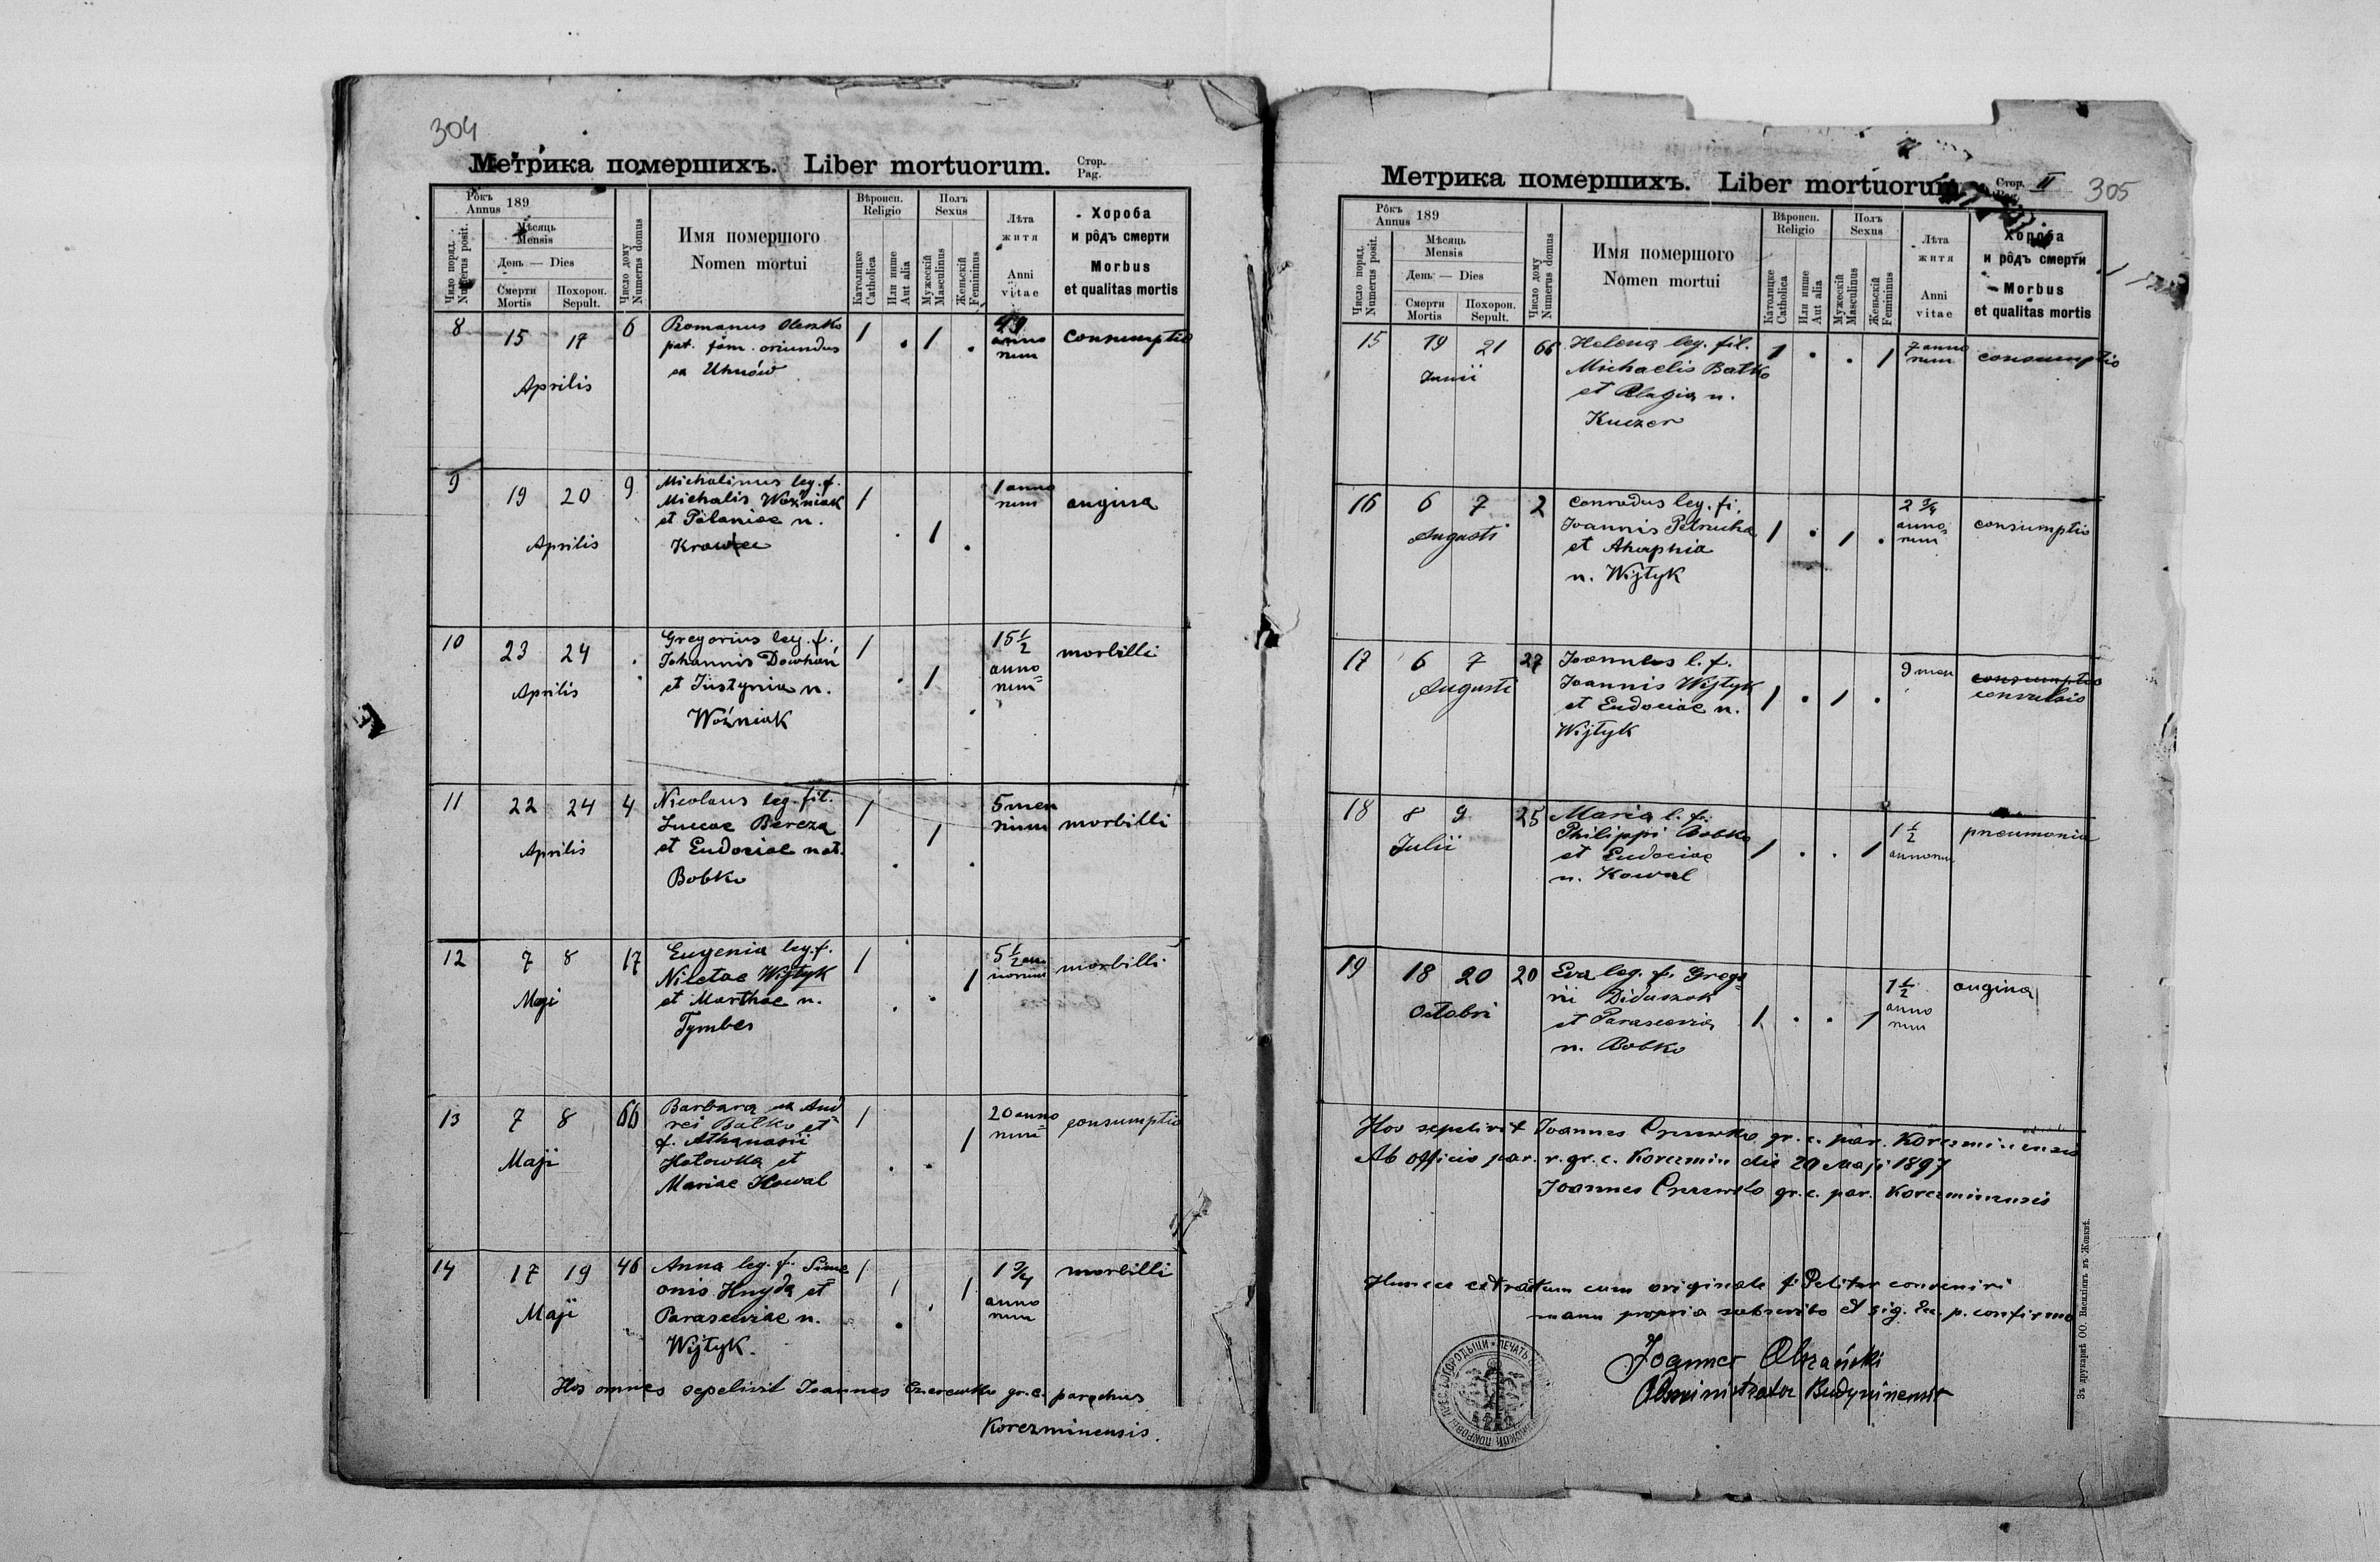 304
Метрика помершихъ. Liber mortuorum.
Стор.
Pag.
Рôкъ
Annus 189
Число поряд.
Numerus posit.
Мѣсяць
Mensis
День — Dies
Смерти
Mortis
Похорон.
Sepult.
Число дому
Numerus domus
Имя помершого
Nomen mortui
Вѣроисп.
Religio
Католицке
Catholica
Или инше
Aut alia
Полъ
Sexus
Мужескій
Masculinus
Женьскій
Femininus
Лѣта
житя
Anni
vitae
Хороба
и рôдъ смерти
Morbus
et qualitas mortis
8 15 17 6 Romanus Oleszko 1 . 1 . consumptio
pat. fam. oriundus anno
ex Uhnów num
Aprilis
9 19 20 9 Michalinus leg. f. 1 anno
Michalis Woźniak 1 num angina
et Pelaniae n. . 1 .
Aprilis
10 23 24 . Gregorius leg. f. 1 15 1/2 morbilli
Johannis Dowhań anno=
et Justynia n. . 1 num
Aprilis
Woźniak .
11 22 24 4 Nicolaus leg. fil. 1 5 men
Luccae Bereza 1 sium morbilli
et Eudociae nat. . .
Aprilis
Bobko
12 7 8 17 Eugenia leg. f. 1 5 1/2 an
Nicetae Wijtyk 1 norum morbilli
et Marthae n. . .
Maji
Tymber
13 7 8 66 Barbara ux And 1 20 anno= consumptio
rei Batko et 1 num
f. Athanasii
Maji
Hotowka et . .
Mariae Kowal
14 17 19 46 Anna leg. f. Sime 1 1 3/4 morbilli
onis Hnyda et 1
Maji
Parasceviae n. . . anno
num
Wijtyk.
Hos omnes sepelivit Joannes gr. c. parochus
Korczminensis.
Метрика помершихъ. Liber mortuorum.
Стор. II
305
Рôкъ
Annus 189
Число поряд.
Numerus posit.
Мѣсяць
Mensis
День — Dies
Смерти
Mortis
Похорон.
Sepult.
Число дому
Numerus domus
Имя помершого
Nomen mortui
Вѣроисп.
Religio
Католицке
Catholica
Или инше
Aut alia
Полъ
Sexus
Мужескій
Masculinus
Женьскій
Femininus
Лѣта
житя
Anni
vitae
Хороба
и рôдъ смерти
Morbus
et qualitas mortis
15 19 21 66 Helena leg. fil. 1 . . 1 7 anno consumptio
Junii
Michaelis Batko num
et Pelagia n.
Kuczer
16 6 7 2 Conradus leg. fi. 2 3/4 consumptio
Augusti
Joannis Petrucha 1 . 1 . anno=
et Aharphia num
n. Wijtyk
17 6 7 27 Joannes l. f. 9 men consumptio
Augusti
Joannis Wijtyk 1 . 1 . convulsio
et Eudociae n.
Wijtyk
18 8 9 25 Maria l. f. 1 1/2 pneumonia
Julii
Philippi Bobko 1 . . 1 annorum
et Eudociae
n. Kowal
19 18 20 20 Eva leg. f. Grego= 1 1/2 angina
Octobri
rii Diduszok 1 . . 1 anno
et Parascevia num
n. Bobko
Hos sepelivit Joannes gr. c. par. Korczminensis
Ab officio par. r. gr. c. Korczmin die 20 Maji 1897
Joannes gr. c. par. Korczminensis
extractum cum originale conveniri
manu propria subscribo et sig. Ec. p. confirmo
Joannes Olszański
Administrator Budyninensis
Зъ друкарнѣ ОО. Василіянъ въ Жовквѣ.